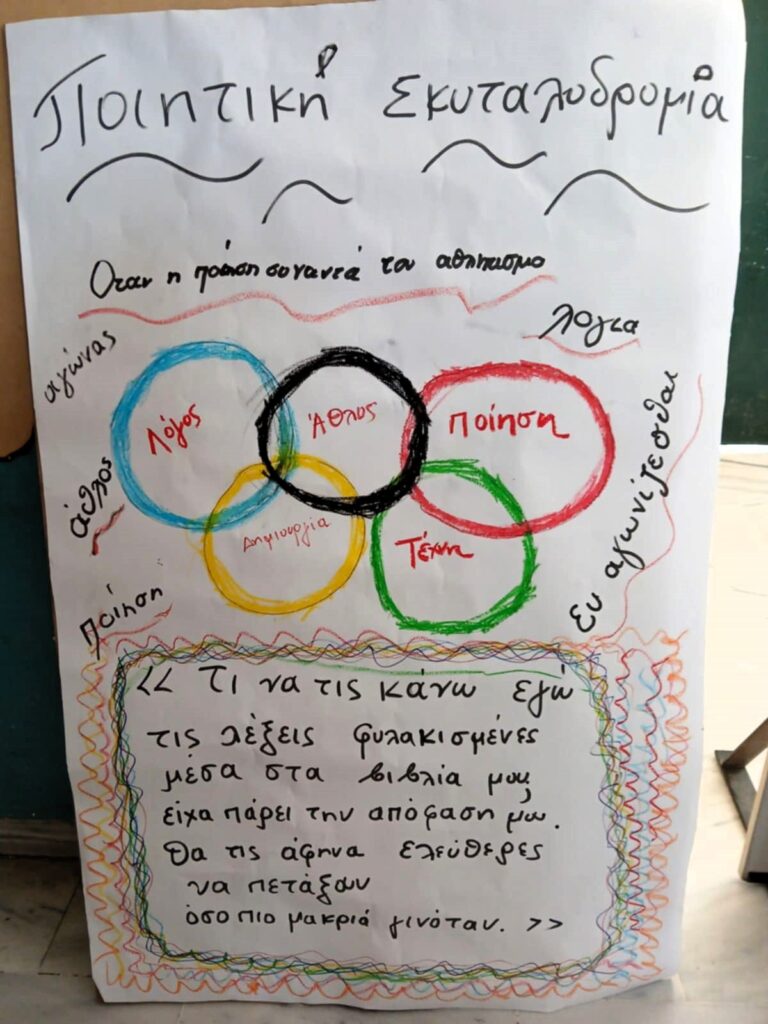 Ποιητική Σκυταλοδρομία
Όταν η ποίηση συναντά τον αθλητισμό
λόγια
αγώνας
Λόγος
Άθλος
Ποίηση
άθλος
Δημιουργία
Τέχνη
Ευ αγωνίζεσθαι
ποίηση
<< Τι να τις κάνω εγώ
τις λέξεις φυλακισμένες
μέσα στα βιβλία μου,
είχα πάρει την απόφαση μου.
Θα τις άφηνα ελεύθερες
να πετάξουν
όσο πιο μακριά γινόταν. >>